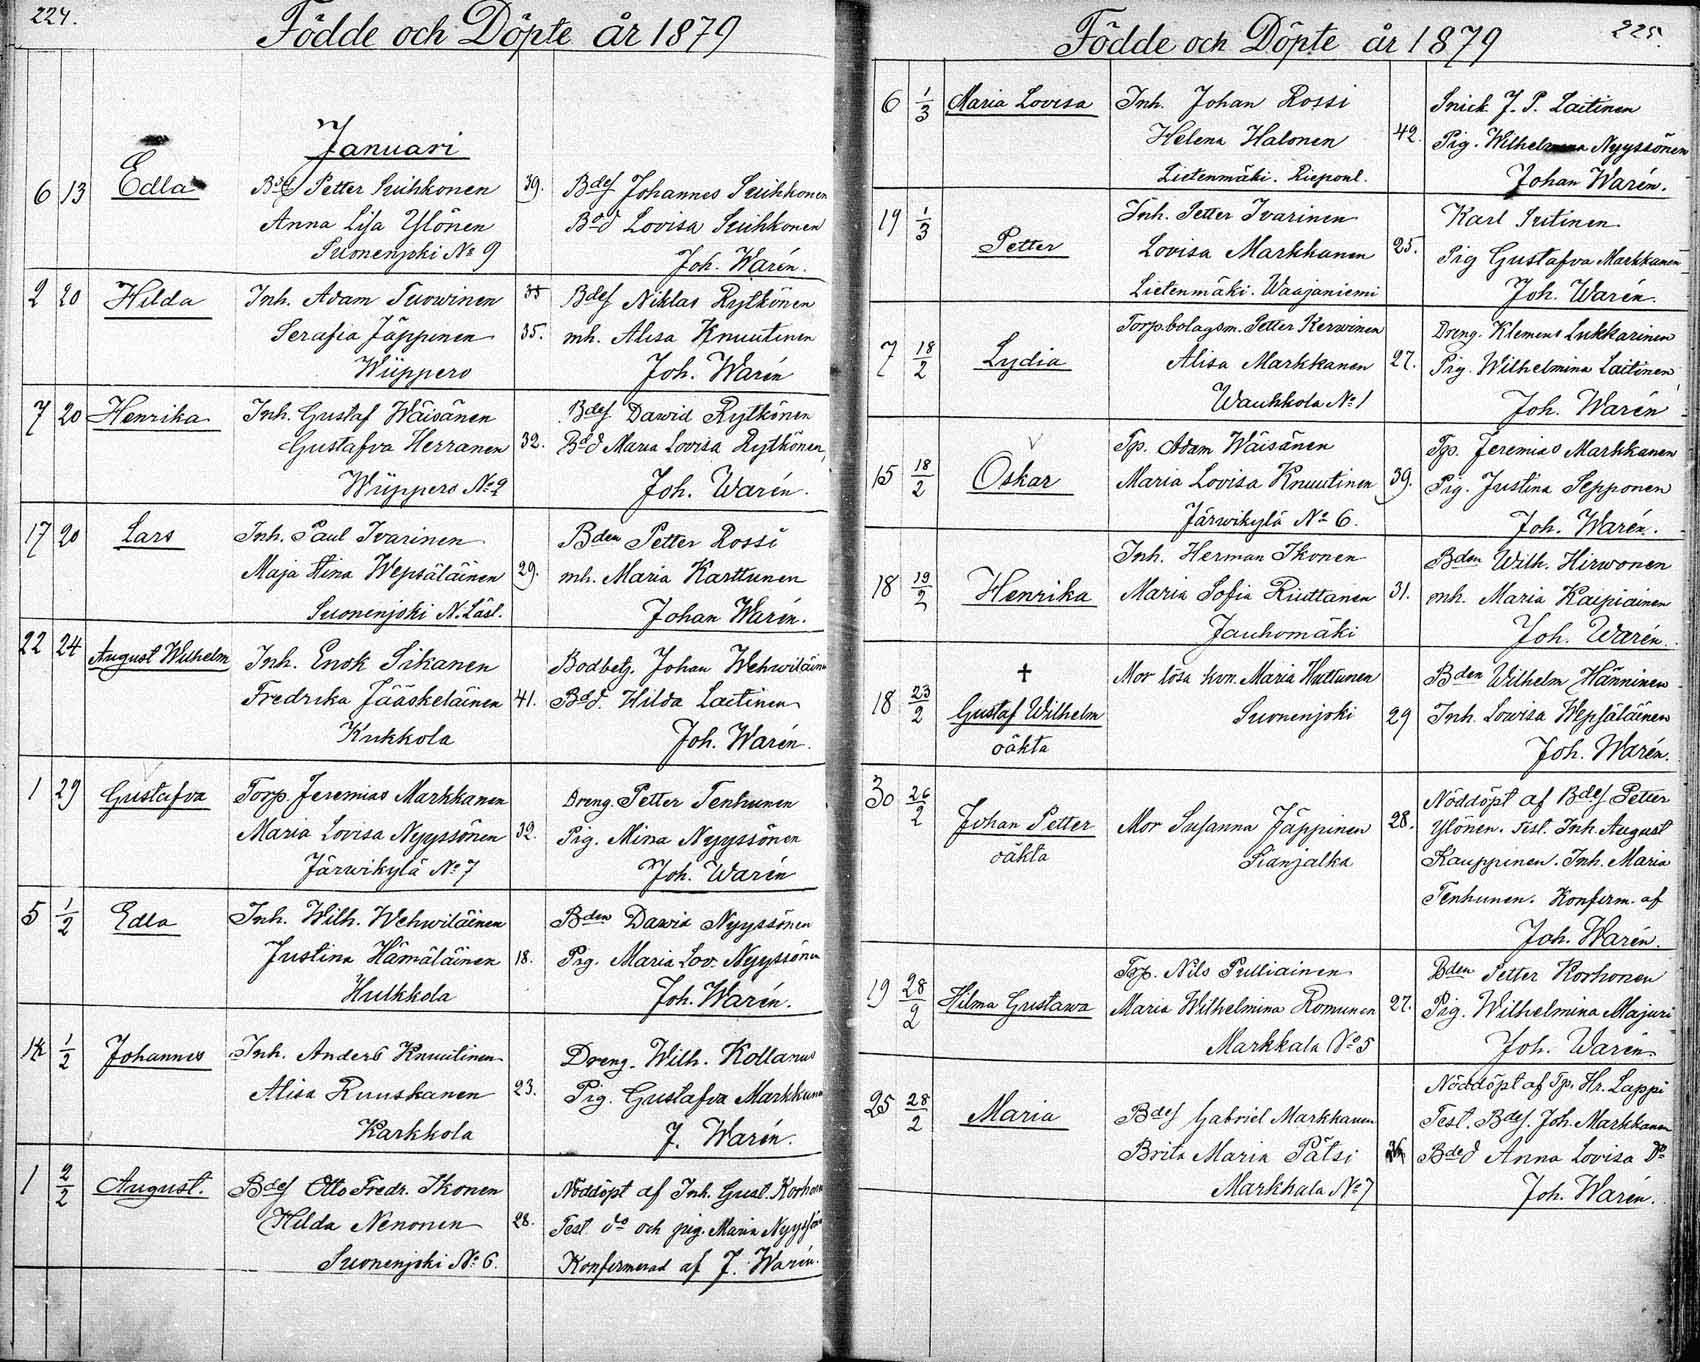 224.
Födde och Döpte år 1879
Januari
6 13 Edla Bdes Petter Suihkonen 39. Bdes Johannes Suihkonen
Anna Lisa Ylönen Bdd Lovisa Suihkonen
Suonenjoki No 9 Joh. Warén.
2 20 Hilda Inh. Adam Tuowinen 35 Bdes Niklas Rytkönen
Serafia Jäppinen 35. mh. Alisa Knuutinen
Wiippero Joh. Warén
7 20 Henrika Inh. Gustaf Wäisänen Bdes Dawid Rytkönen
Gustafva Herranen 32. Bdd Maria Lovisa Rytkönen,
Wiippero No 2 Joh. Warén.
17 20 Lars Inh. Paul Ivarinen Bden Petter Rossi
Maja Stina Wepsäläinen 29. mh. Maria Karttunen
Suonenjoki N. Läsl. Johan Warén.
22 24 August Wilhelm Inh. Enok Sikanen Bodbetj. Johan Wehwiläin
Fredrika Jääskeläinen 41. Bdd. Hilda Laitinen
Kukkola Joh. Warén.
1 29 Gustafva Torp. Jeremias Markkanen Dreng. Petter Tenhunen
Maria Lovisa Nyyssönen 32. Pig. Mina Nyyssönen
Järwikylä No 7 Joh. Warén
5 1/2 Edla Inh. Wilh. Wehwiläinen Bden Dawid Nyyssönen
Justina Hämäläinen 18. Pig. Maria Lov. Nyyssönen
Hulkkola Joh. Warén.
14 1/2 Johannes Inh. Anders Knuutinen Dreng. Wilh. Kollanus
Alisa Ruuskanen 23. Pig. Gustafva Markkanen
Karkkola J. Warén.
1 2/2 August. Bdes Otto Fredr. Ikonen Nöddöpt af Inh. Gust. Korhonen
Hilda Nenonen 28. Test. do och pig. Maria Nyyssön
Suonenjoki No 6. Konfirmerad af J. Warén.
225.
Födde och Döpte år 1879
6 1/3 Maria Lovisa Inh. Johan Rossi Snick. J. P. Laitinen
Helena Halonen 42. Pig. Wilhelmina Nyyssönen
Lietenmäki. Rieponl. Johan Warén.
19 1/3 Petter Inh. Petter Ivarinen Karl Sutinen
Lovisa Markkanen 25. Pig Gustafva Markkanen
Lietenmäki. Waajaniemi Joh. Warén.
7 18/2 Lydia Torp.bolagsm. Petter Kerwinen Dreng. Klemens Lukkarinen
Alisa Markkanen 27. Pig. Wilhelmina Laitinen
Waukkola No 1 Joh. Warén
15 18/2 Oskar Tp. Adam Wäisänen Tp. Jeremias Markkanen
Maria Lovisa Knuutinen 39. Pig. Justina Sepponen
Järwikylä No 6. Joh. Warén.
18 19/2 Henrika Inh. Herman Ikonen Bden Wilh. Hirwonen
Maria Sofia Riittanen 31. mh. Maria Karpiainen
Jauhomäki Joh. Warén.
18 23/2 † Gustaf Wilhelm Mor lösa kvn. Maria Huttunen Bden Wilhelm Hänninen
oäkta Suonenjoki 29 Inh. Lowisa Wepsäläinen
Joh. Warén.
30 26/2 Johan Petter Mor Susanna Jäppinen 28. Nöddöpt af Bdes Petter
oäkta Sianjalka Ylönen. Test. Inh. August
Kauppinen. Inh. Maria
Tenhunen. Konfirm. af
Joh. Warén.
19 28/2 Hilma Gustawa Tp. Nils Pulliainen Bden Petter Korhonen
Maria Wilhelmina Romunen 27. Pig. Wilhelmina Majuri
Markkala No 5 Joh. Warén
25 28/2 Maria Bdes Gabriel Markkanen Nöddöpt af Tp. Hr. Lappi
Brita Maria Pätsi Test. Bdes. Joh. Markkanen
Markkala No 7 Bded Anna Lovisa Do
Joh. Warén.